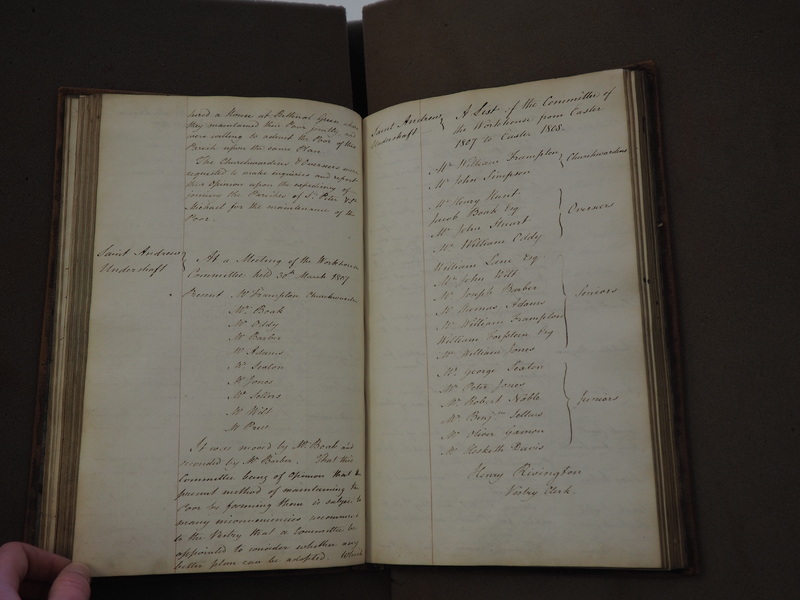 hired a House at Bethnal Green where
they maintained their Poor jointly and
were willing to admit the Poor of this
Parish upon the same Plan
The Churchwardens & Overseers were
requested to make enquiries and report
their Opinion upon the expediency of
joining the Parishes of St. Peter & St.
Michael for the maintenance of the
Poor.
Saint Andrew
Undershaft
At a Meeting of the Workhouse
Committee held 30th March 1807
Present Mr Frampton Churchwarden
Mr Boak
Mr Oddy
Mr Barber
Mr Adams
Mr Seaton
Mr Jones
Mr Sellers
Mr Wilt
Mr
It was moved by Mr Boak and
seconded by Mr Barber. That this
Committee being of Opinion that the
present method of maintaining the
Poor by farming them is subject to
many inconveniencies recommend
to the Vestry that a Committee be
appointed to consider whether any
better plan can be adopted. Which
Saint Andrew
Undershaft
A List of the Committee of
the Workhouse from Easter
1807 to Easter 1808.
Mr William Frampton
Mr John Simpson
Churchwardens
Mr Henry Hunt
Jacob Boak Esq
Mr John Stuart
Mr William Oddy
Overseers
William Lane Esq.
Mr John Wilt
Mr Joseph Barber
Mr Thomas Adams
Mr William Frampton
William Esq
Mr William Jones
Seniors
Mr George Seaton
Mr Peter Jones
Mr Robert Noble
Mr Benjmn Sellers
Mr Oliver
Mr Hesketh Davis
Juniors
Henry Rivington
Vestry Clerk.